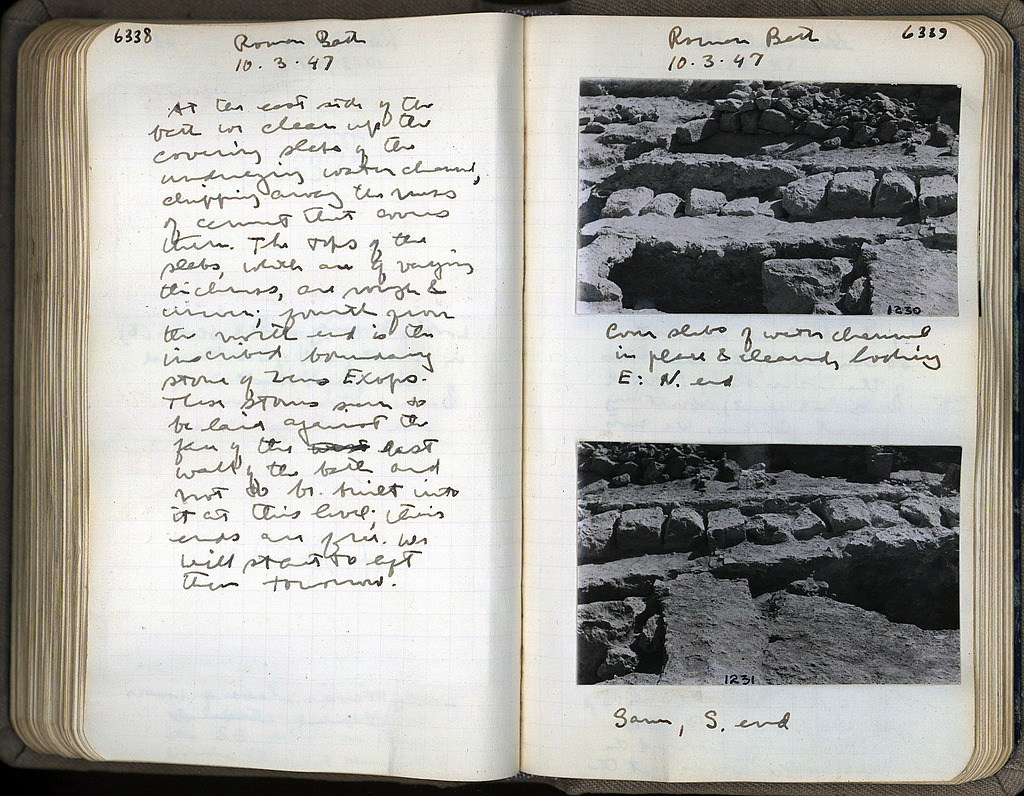 6338
Roman Bath
10.3.47
At the east side of the
bath we clean up the
covering slabs of the
underlying water channel,
chipping away the mass
of cement that covers
them. The tops of the
slabs, which are of varying
thickness, are rough &
uneven; fourth from
the north end is the
inscribed boundary
stone of Zeus Exops.
These stones seem to
be laid against the
face of the west east
wall of the bath and
not to be built into
it at this level; their
ends are free. We
will start to lift
them tomorrow.
6339
Roman Bath
10.3.47
1230
Cover slabs of water channel
in place & cleaned, looking
E: N. end
1231
Same, S. end